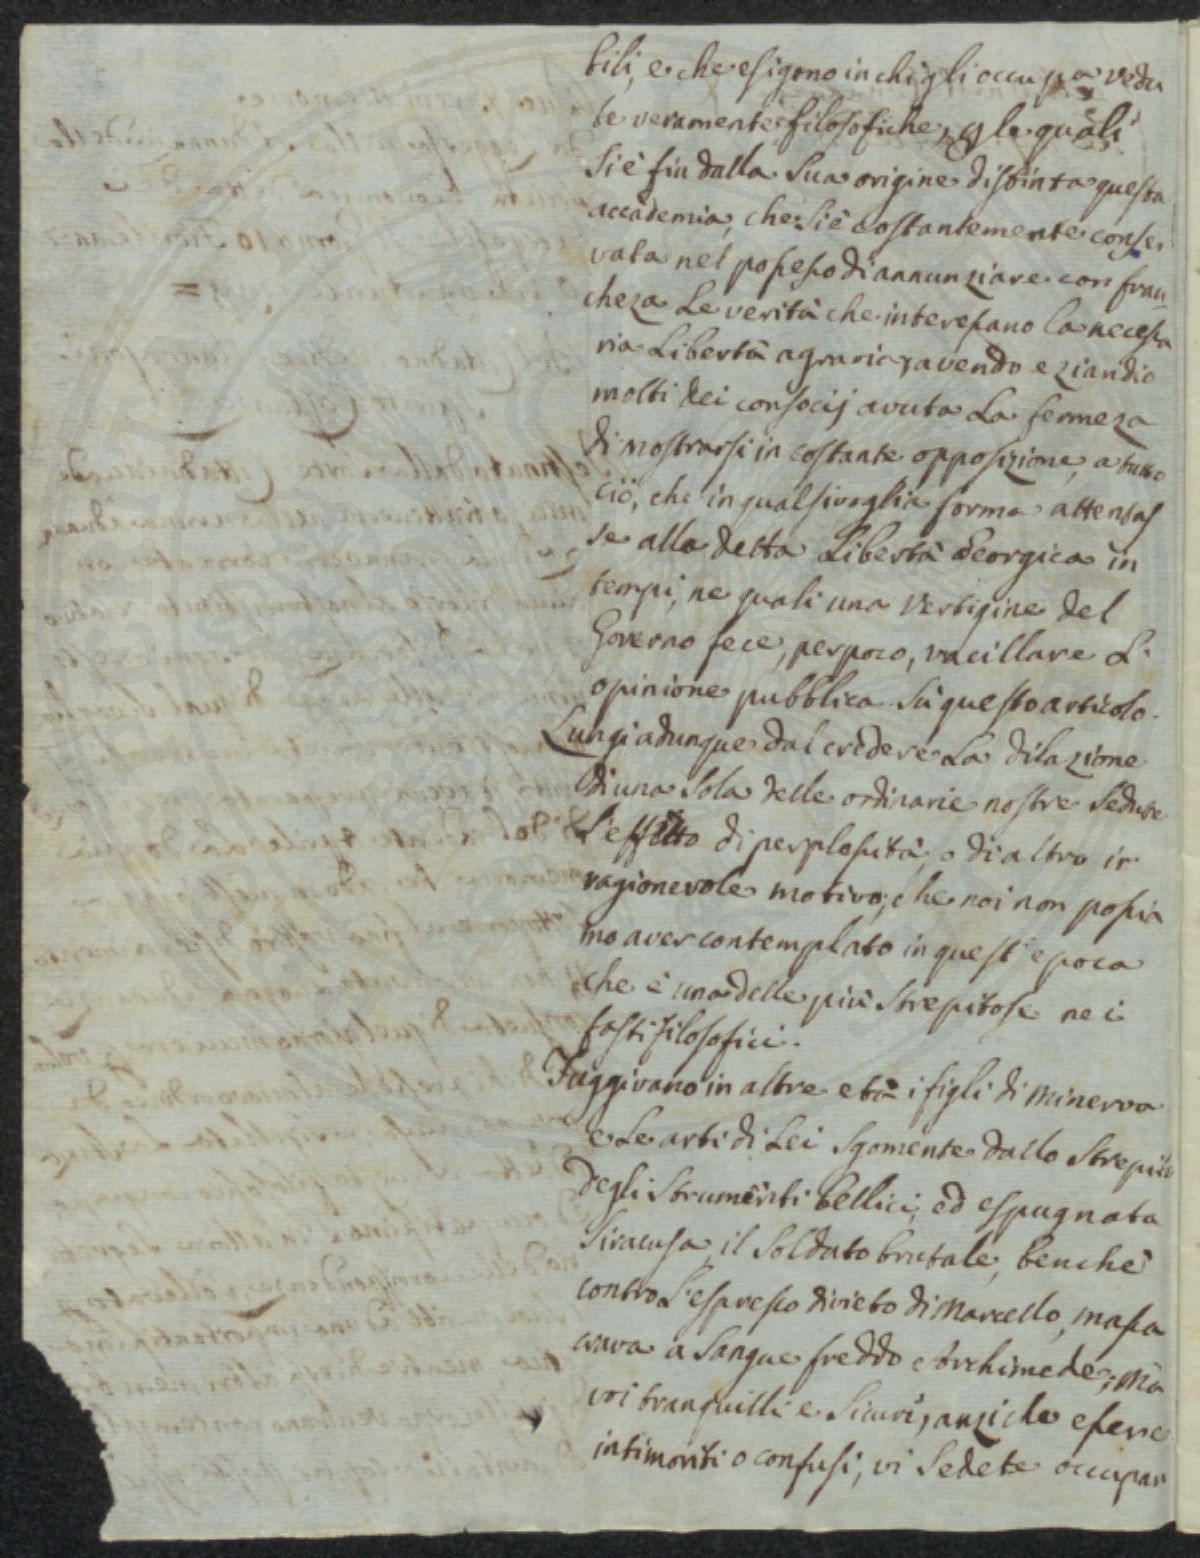 bili, e che esigono in chi gli occupa vedu
te veramente filosofiche, p le quali
si è fin dalla sua origine distinta questa
accademia, che si è costantemente conser
vata nel possesso di annunziare con fran
cheza le verità che interessano la necessa
ria Libertà agraria, avendo eziandio
molti dei consocij avuta la fermeza
di mostrarsi in costante opposizione, a tutto
ciò, che in qualsivoglia forma attentas
se alla detta Libertà Georgica in
tempi, ne quali una vertigine del
Governo fece, per poco, vacillare L'
opinione pubblica su questo articolo.
Lungi adunque dal credere La dilazione
di una sola delle ordinarie nostre sedute
L'effetto di perplessità, o di altro ir
ragionevole motivo; che noi non possia
mo aver contemplato in quest'epoca
che è una delle più strepitose nei
fasti filosofici.
Fuggivano in altre età i figli di Minerva
e Le arti di Lei sgomente dallo strepito
degli strumenti bellici, ed espugnata
Siracusa il soldato brutale, benchè
contro L'espresso divieto di Marcello, massa
crava a sangue freddo Archimede; Ma
voi tranquilli e sicuri, anziche essere
intimoriti o confusi, vi sedete occupar